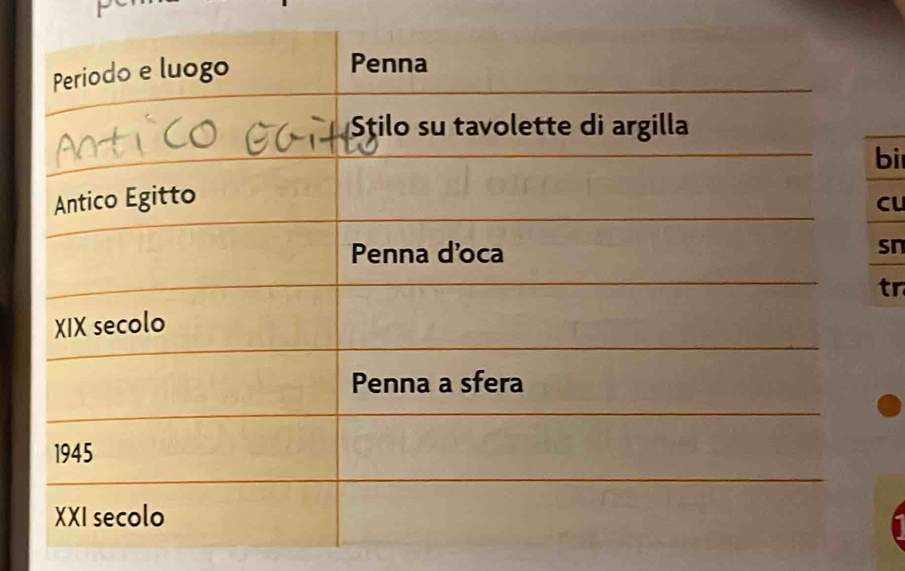 Periodo e luogo Penna
Antico EGitto Stilo su tavolette di argilla
Antico Egitto
Penna d'oca
XIX secolo
Penna a sfera
1945
XXI secolo
bi
cu
sn
tr
1